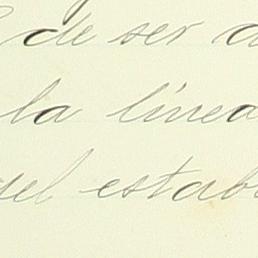 de ser
la línea
el estab